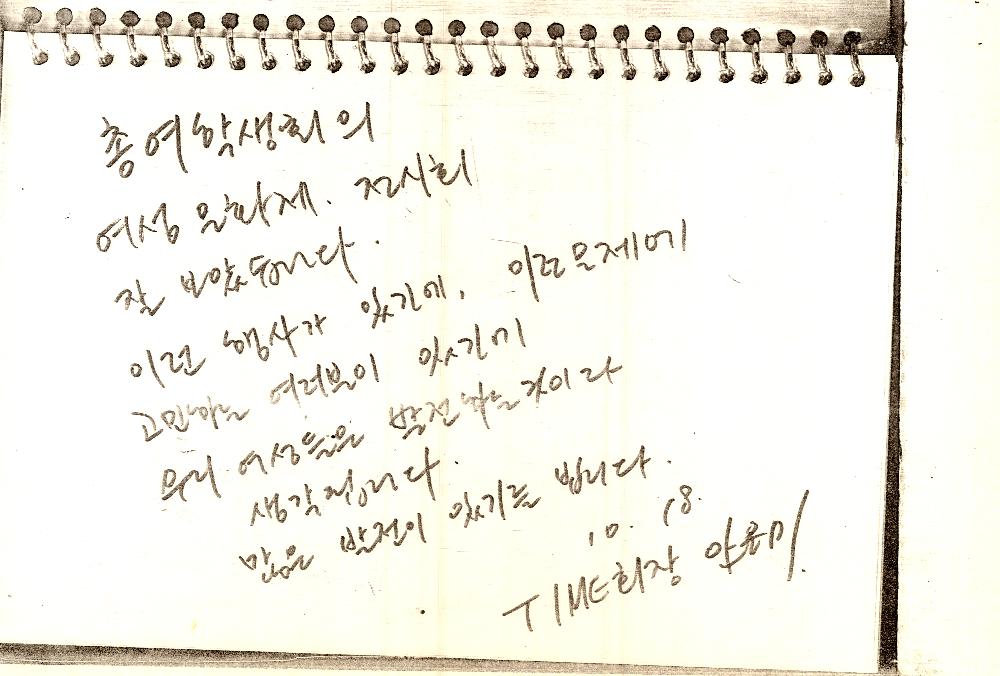 총여학생회의
여성 문화제. 전시회
잘 보았습니다.
이런 행사가 있기에, 이런 문제에
고민하는 여러분이 있기에
우리 여성들은 발전하는 것이라
생각됩니다.
많은 발전이 있기를 빕니다.
10. 18.
TIME회장 안윤미